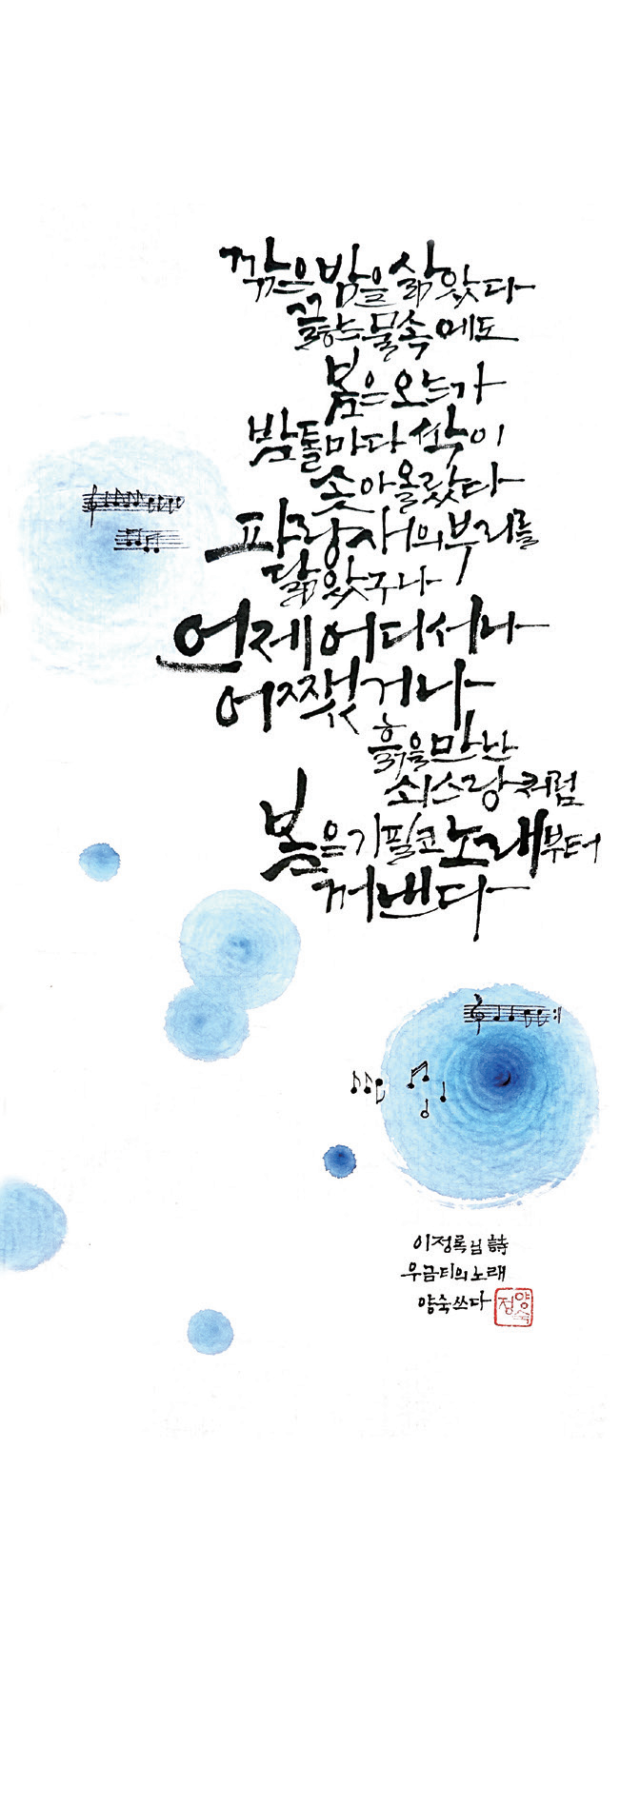 깎은 밤을 삶았다
끓는 물속에도
봄은 오는가
밤톨마다 싹이
솟아올랐다
파랑새의 부리를
닮았구나
언제 어디서나
어쨌거나
흙을 만난
쇠스랑처럼
봄은 기필코 노래부터
꺼낸다
이정록님 詩
우금티의 노래
양숙쓰다
정양숙